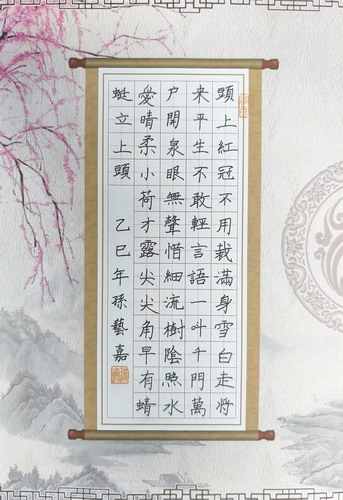 頭上紅冠不用裁滿身雪白走將
来平生不敢輕言語一叫千門萬
户開泉眼無聲惜細流樹陰照水
愛晴柔小荷才露尖尖角早有蜻
蜓立上頭 乙巳年孫藝嘉